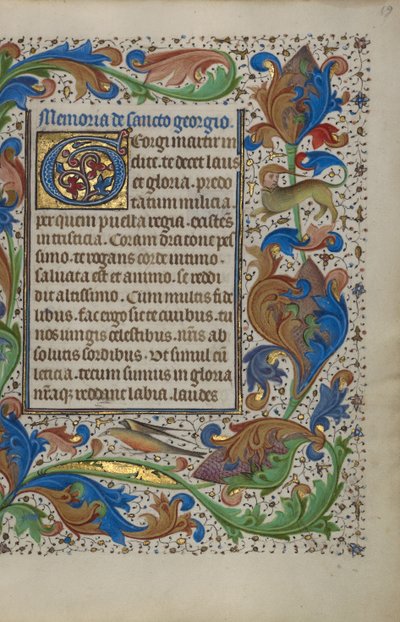 19
Memoria de sancto georgio.
Georgi martir in
clite. te decet laus
et gloria. predo
tatum milicia
per quem puella regia. existēs
in tristicia. Coram dracone pes
simo. te rogans corde intimo.
saluata est et animo. se reddi
dit altissimo. Cum multis fide
libus. fac ergo sic te ciuibus. tu
nos iungis celestibus. nr̄is ab
solutis sordibus. Ut simul cū
leticia. tecum simus in gloria
nr̄aq; reddant labia. laudes